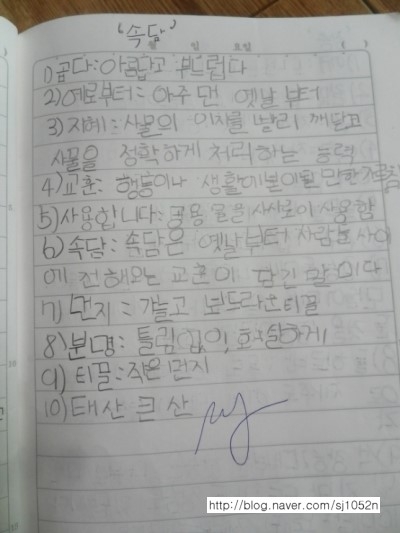 "속담"
월 일 요일
1) 곱다: 아름답고 부드럽다
2) 예로부터: 아주 먼 옛날부터
3) 지혜: 사물의 이치를 빨리 깨닫고
사물을 정확하게 처리하는 능력
4) 교훈: 행동이나 생활에 본이 될 만한 가르침
5) 사용합니다: 공용 물을 사사로이 사용함
6) 속담: 속담은 옛날부터 사람들 사이
에 전해오는 교훈이 담긴 말이다
7) 먼지: 가늘고 보드라운 티끌
8) 분명: 틀림없이, 확실하게
9) 티끌: 작은 먼지
10) 태산 큰 산
http://blog.naver.com/sj1052n